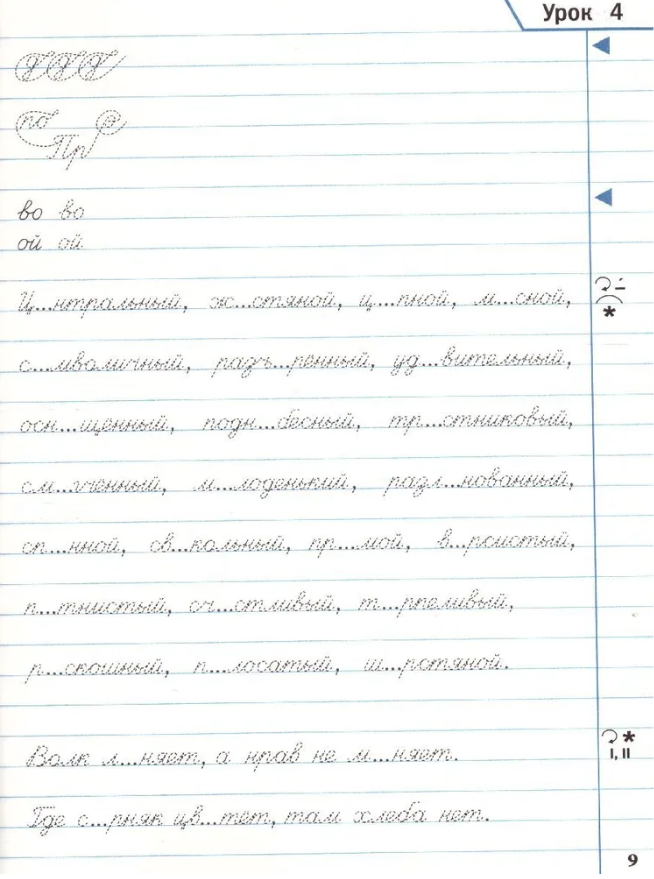 Урок 4
Г Г Г
по
Пр
во во
ой ой
Ц...нтральный, ж...стяной, ц...пной, м...сной,
с...мволичный, разъ...ренный, уд...вительный,
осн...щенный, подн...бесный, тр...стниковый,
см...гченный, м...лоденький, разл...нованный,
сп...нной, св...кольный, пр...мой, в...рсистый,
п...тнистый, сч...стливый, т...рпеливый,
р...скошный, п...лосатый, ш...рстяной.
Волк л...няет, а нрав не м...няет.
I, II
Где с...рняк цв...тет, там хлеба нет.
9